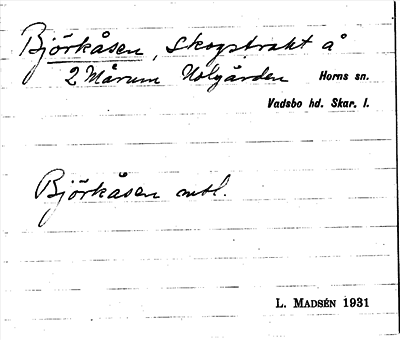 Björkåsen, Skogstrakt å
2 Mårum Nolgården Horns sn.
Vadsbo hd. Skar. l.
Björkåsen mtl.
L. MADSÉN 1931